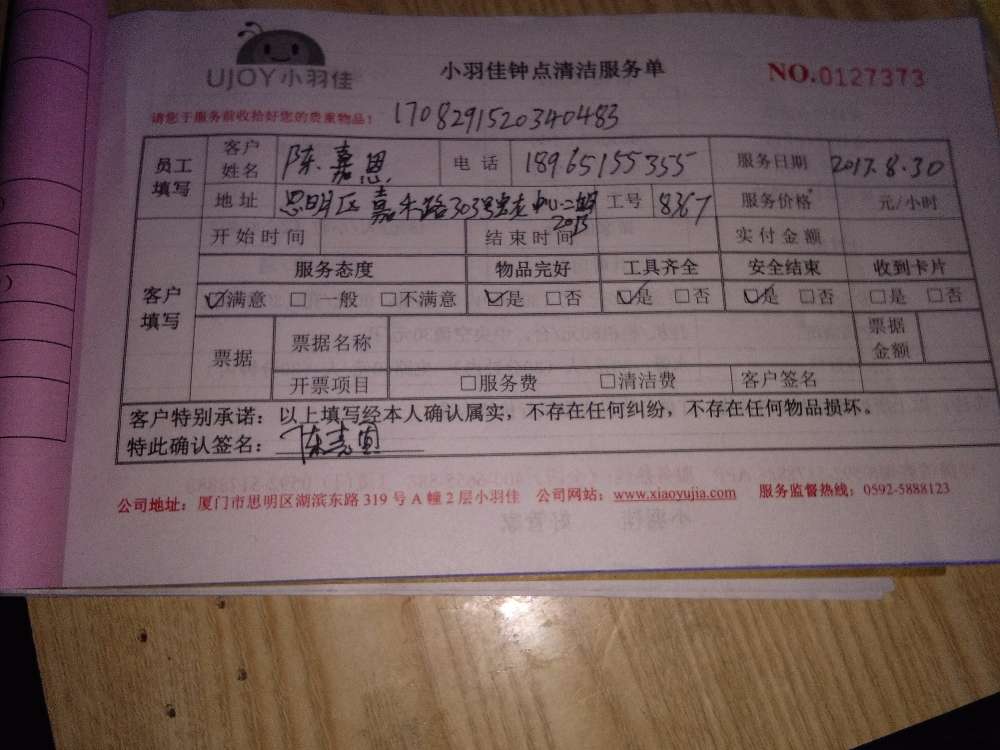 UJOY小羽佳
小羽佳钟点清洁服务单
NO.0127373
请您于服务前收拾好您的贵重物品！ 1708291520340483
员工填写 客户姓名 陈嘉恩 电话 18965155355 服务日期 2017.8.30
地址 思明区嘉禾路303号 中心二期 2013 工号 8367 服务价格 元/小时
开始时间 结束时间 实付金额
客户填写 服务态度 物品完好 工具齐全 安全结束 收到卡片
☑满意 □一般 □不满意 ☑是 □否 ☑是 □否 ☑是 □否 □是 □否
票据 票据名称 票据金额
开票项目 □服务费 □清洁费 客户签名
客户特别承诺：以上填写经本人确认属实，不存在任何纠纷，不存在任何物品损坏。
特此确认签名：陈志
公司地址：厦门市思明区湖滨东路319号A幢2层小羽佳 公司网站：www.xiaoyujia.com 服务监督热线：0592-5888123